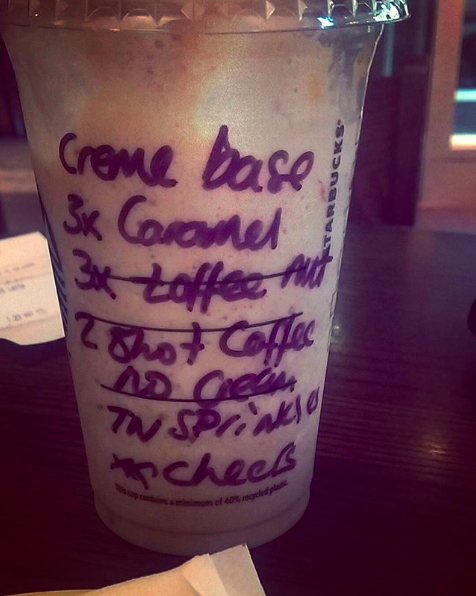 Creme base
3x Caramel
3x toffee nut
2 shot Coffee
no Cream
TN SPrinkles
Checks
This cup contains a minimum of 40% recycled plastic.
STARBUCKS®